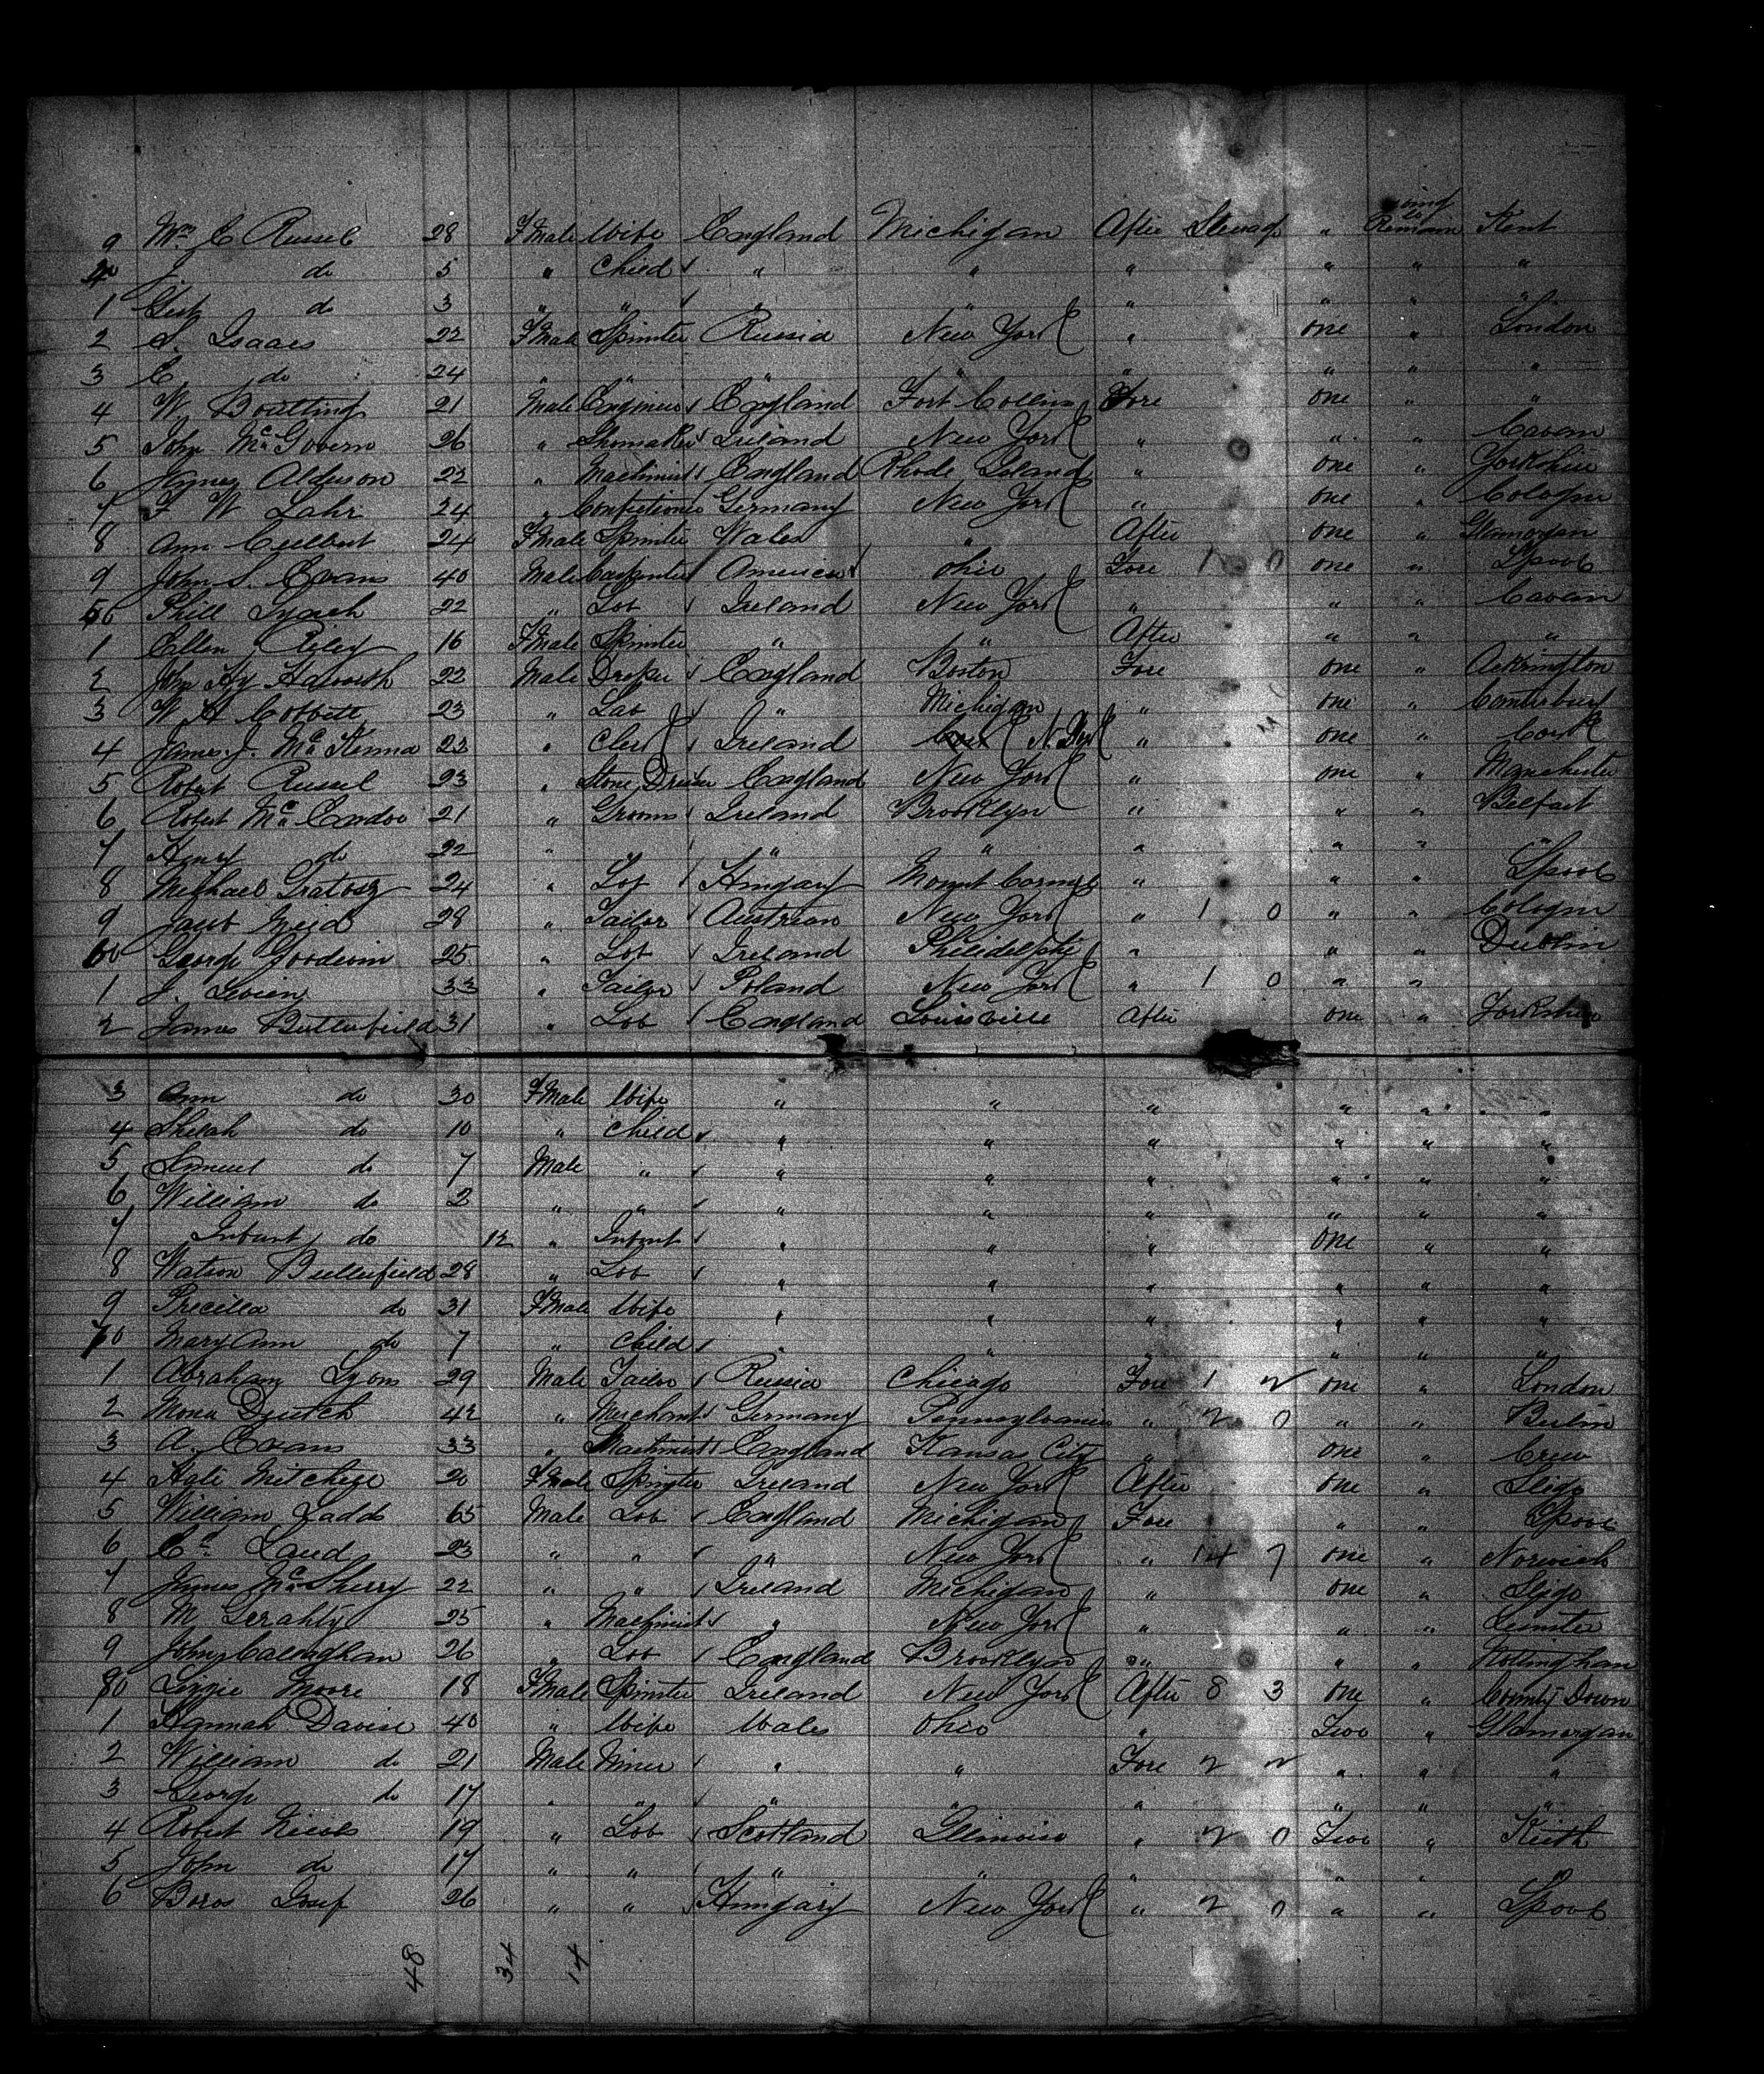 going to
9 Mrs C Russel 28 FMale Wife England Michigan After Steerage " Remain Kent
40 J. do 5 " Child " " " " " "
1 Gert do 3 " " " " " " " "
2 S. Isaacs 22 FMale Spinster Russia New York " one " London
3 C. do 24 " " " " " " " "
4 W. Boulting 21 Male Engineer England Fort Collins Fore one " "
5 John McGovern 26 " Shomaker Ireland New York " " " Cavan
6 Alderson 22 " Machinist England Rhode Island " one " Yorkshire
7 F W Lahr 24 " Confectioner Germany New York " one " Cologne
8 Ann Culbert 24 FMale Spinster Wales " After one " Glamorgan
9 John S. Evans 40 Male Carpenter America Ohio Fore 1 0 one " Lpool
50 Phill Lynch 22 " Lab Ireland New York " " " Cavan
1 Ellen Riley 16 FMale Spinster " " After " " "
2 John Hy Haworth 22 Male Draper England Boston Fore one " Ackrington
3 W H Cobbett 23 " Lab " Michigan " one " Canterbury
4 James J. McKenna 23 " Clerk Ireland N. York " one " Cork
5 Robert Russel 23 " Stone Driser England New York " one " Manchester
6 Robert McEndoo 21 " Groom Ireland Brooklyn " " " Belfast
7 Henry do 22 " " " " " " "
8 Michael Gratosz 24 " Lab Hungary Mount Carmel " " " Lpool
9 Jacob 28 " Tailor Austrian New York " 1 0 " " Cologne
60 George Goodwin 25 " Lab Ireland Philidelphi " " " Dublin
1 J. Levien 33 " Tailor Poland New York " 1 0 " "
2 James Butterfield 31 " Lab England Louisville After one " Yorkshire
3 Ann do 30 FMale Wife " " " " " "
4 Shelah do 10 " Child " " " " " "
5 Samuel do 7 Male " " " " " " "
6 William do 2 " " " " " " " "
7 Infant do 12 " Infant " " " one " "
8 Watson Butterfield 28 " Lab " " " " " "
9 Precilla do 31 FMale Wife " " " " " "
70 Mary Ann do 7 " Child " " " " " "
1 Abraham Lyons 29 Male Tailor Russia Chicago Fore 1 2 one " London
2 Deutch 42 " Merchant Germany Pennsylvania " 2 0 " " Berlin
3 A. Evans 33 " Machinist England Kansas City " one " Crew
4 Kate Mitchell 20 FMale Spinster Ireland New York After one " Sligo
5 William Ladds 65 Male Lab England Michigan Fore " " Lpool
6 Cs Laud 23 " " " New York " 14 7 one " Norwich
7 James McSherry 22 " " Ireland Michigan " one " Sligo
8 M Gerahty 25 " Machinist " New York " " " Leinster
9 John Calaghan 26 " Lab England Brooklyn " " " Nottingham
80 Lizzie Moore 18 FMale Spinster Ireland New York After 8 3 one " County Down
1 Hannah Davise 40 " Wife Wales Ohio " Two " Glamorgan
2 William do 21 Male Miner " " Fore 2 2 " " "
3 George do 17 " " " " " " " "
4 Robert Nicols 19 " Lab Scotland Illinois " 2 0 Two " Keith
5 John do 17 " " " " " " "
6 Boros Josef 26 " " Hungary New York " 2 0 " " Lpool
48 34 14